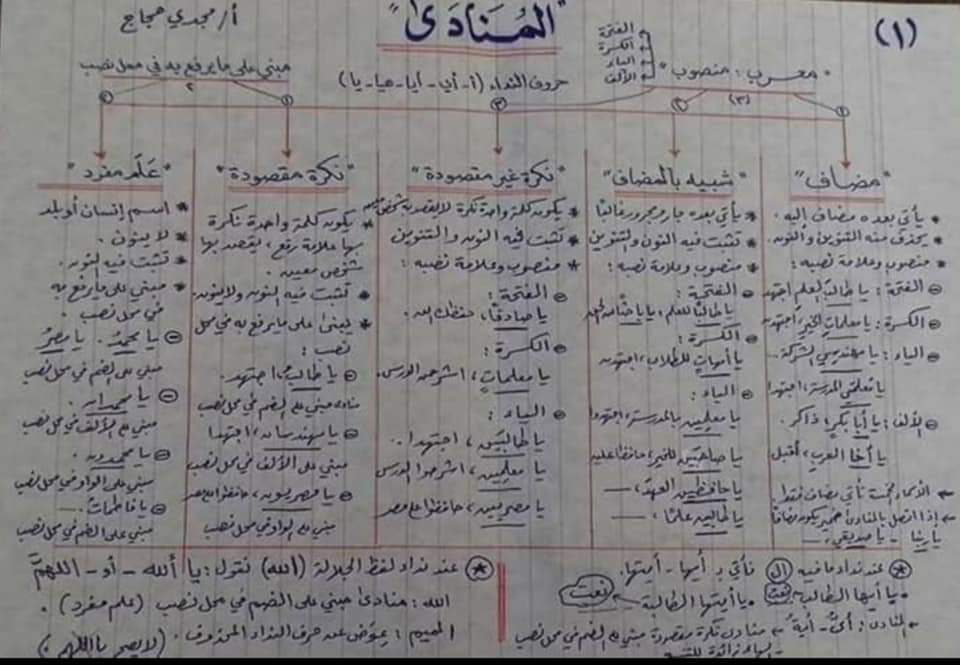 (١)
"المُنَادَى"
أ/ مجدي حجاج
"معرب: منصوب"
(٣)
الفتحة
الكسرة
الياء
الألف
حروف النداء (أ - أي - أيا - هيا - يا)
مبني على ما يرفع به في محل نصب
٢
"مضاف"
* يأتي بعده مضاف إليه.
* يحذف منه التنوين والنون.
* منصوب وعلامة نصبه:
الفتحة: يا طالبَ العلم اجتهد
الكسرة: يا معلماتِ الخير، اجتهدن
الياء: يا مهندسي الشركة
يا معلمَي المدرسة، اجتهدا
الألف: يا أبا بكرٍ، ذاكر.
يا أخا العرب، أقبل
الأسماء الخمسة تأتي مضاف فقط.
إذا اتصل بالمنادى ضمير يكون مضافًا
يا ربنا - يا صديقي
"شبيه بالمضاف"
* يأتي بعده جار ومجرور غالبًا
* تثبت فيه النون والتنوين
* منصوب وعلامة نصبه:
الفتحة:
يا طالبًا للعلم،
الكسرة:
يا أمهاتٍ للطلاب، اجتهدن
الياء:
يا معلمين بالمدرسة، اجتهدوا
يا صاحبَين للخير، حافظا عليه
يا حافظين العهد،
يا طالبين علمًا،
"نكرة غير مقصودة"
* يكون كلمة واحدة نكرة لا يقصد به شخص معين
* تثبت فيه النون والتنوين
* منصوب وعلامة نصبه:
الفتحة:
يا صادقًا، حفظك الله.
الكسرة:
يا معلماتٍ، اشرحن الدرس.
الياء:
يا طالبَين، اجتهدا.
يا معلمين، اشرحوا الدرس
يا مصريين، حافظوا على مصر
"نكرة مقصودة"
* يكون كلمة واحدة نكرة
بها علامة رفع، يقصد بها
شخص معين.
* تثبت فيه النون ولا ينون.
* يبنى على ما يرفع به في محل
نصب:
يا طالبُ، اجتهد.
منادى مبني على الضم في محل نصب
يا مهندسان، اجتهدا
مبني على الألف في محل نصب
يا مصريون، حافظوا على مصر
مبني على الواو في محل نصب
"عَلَم مفرد"
* اسم إنسان أو بلد
* لا ينون.
* تثبت فيه النون.
* مبني على ما يرفع به
في محل نصب.
يا محمدُ. يا مصرُ
مبني على الضم في محل نصب
يا محمدان.
مبني على الألف في محل نصب
يا محمدون.
مبني على الواو في محل نصب
يا فاطماتُ.
مبني على الضم في محل نصب
* عند نداء ما فيه (ال) نأتي بـ أيها - أيتها.
يا أيها الطالب نعت
يا أيتها الطالبة نعت
المنادى: أيُّ - أية منادى نكرة مقصودة مبني على الضم في محل نصب
الهاء زائدة للتنبيه
* عند نداء لفظ الجلالة (الله) نقول: يا ألله - أو - اللهمَّ
الله: منادى مبني على الضم في محل نصب (علم مفرد).
الميم: عوض عن حرف النداء المحذوف. (لا يصح يا اللهم)